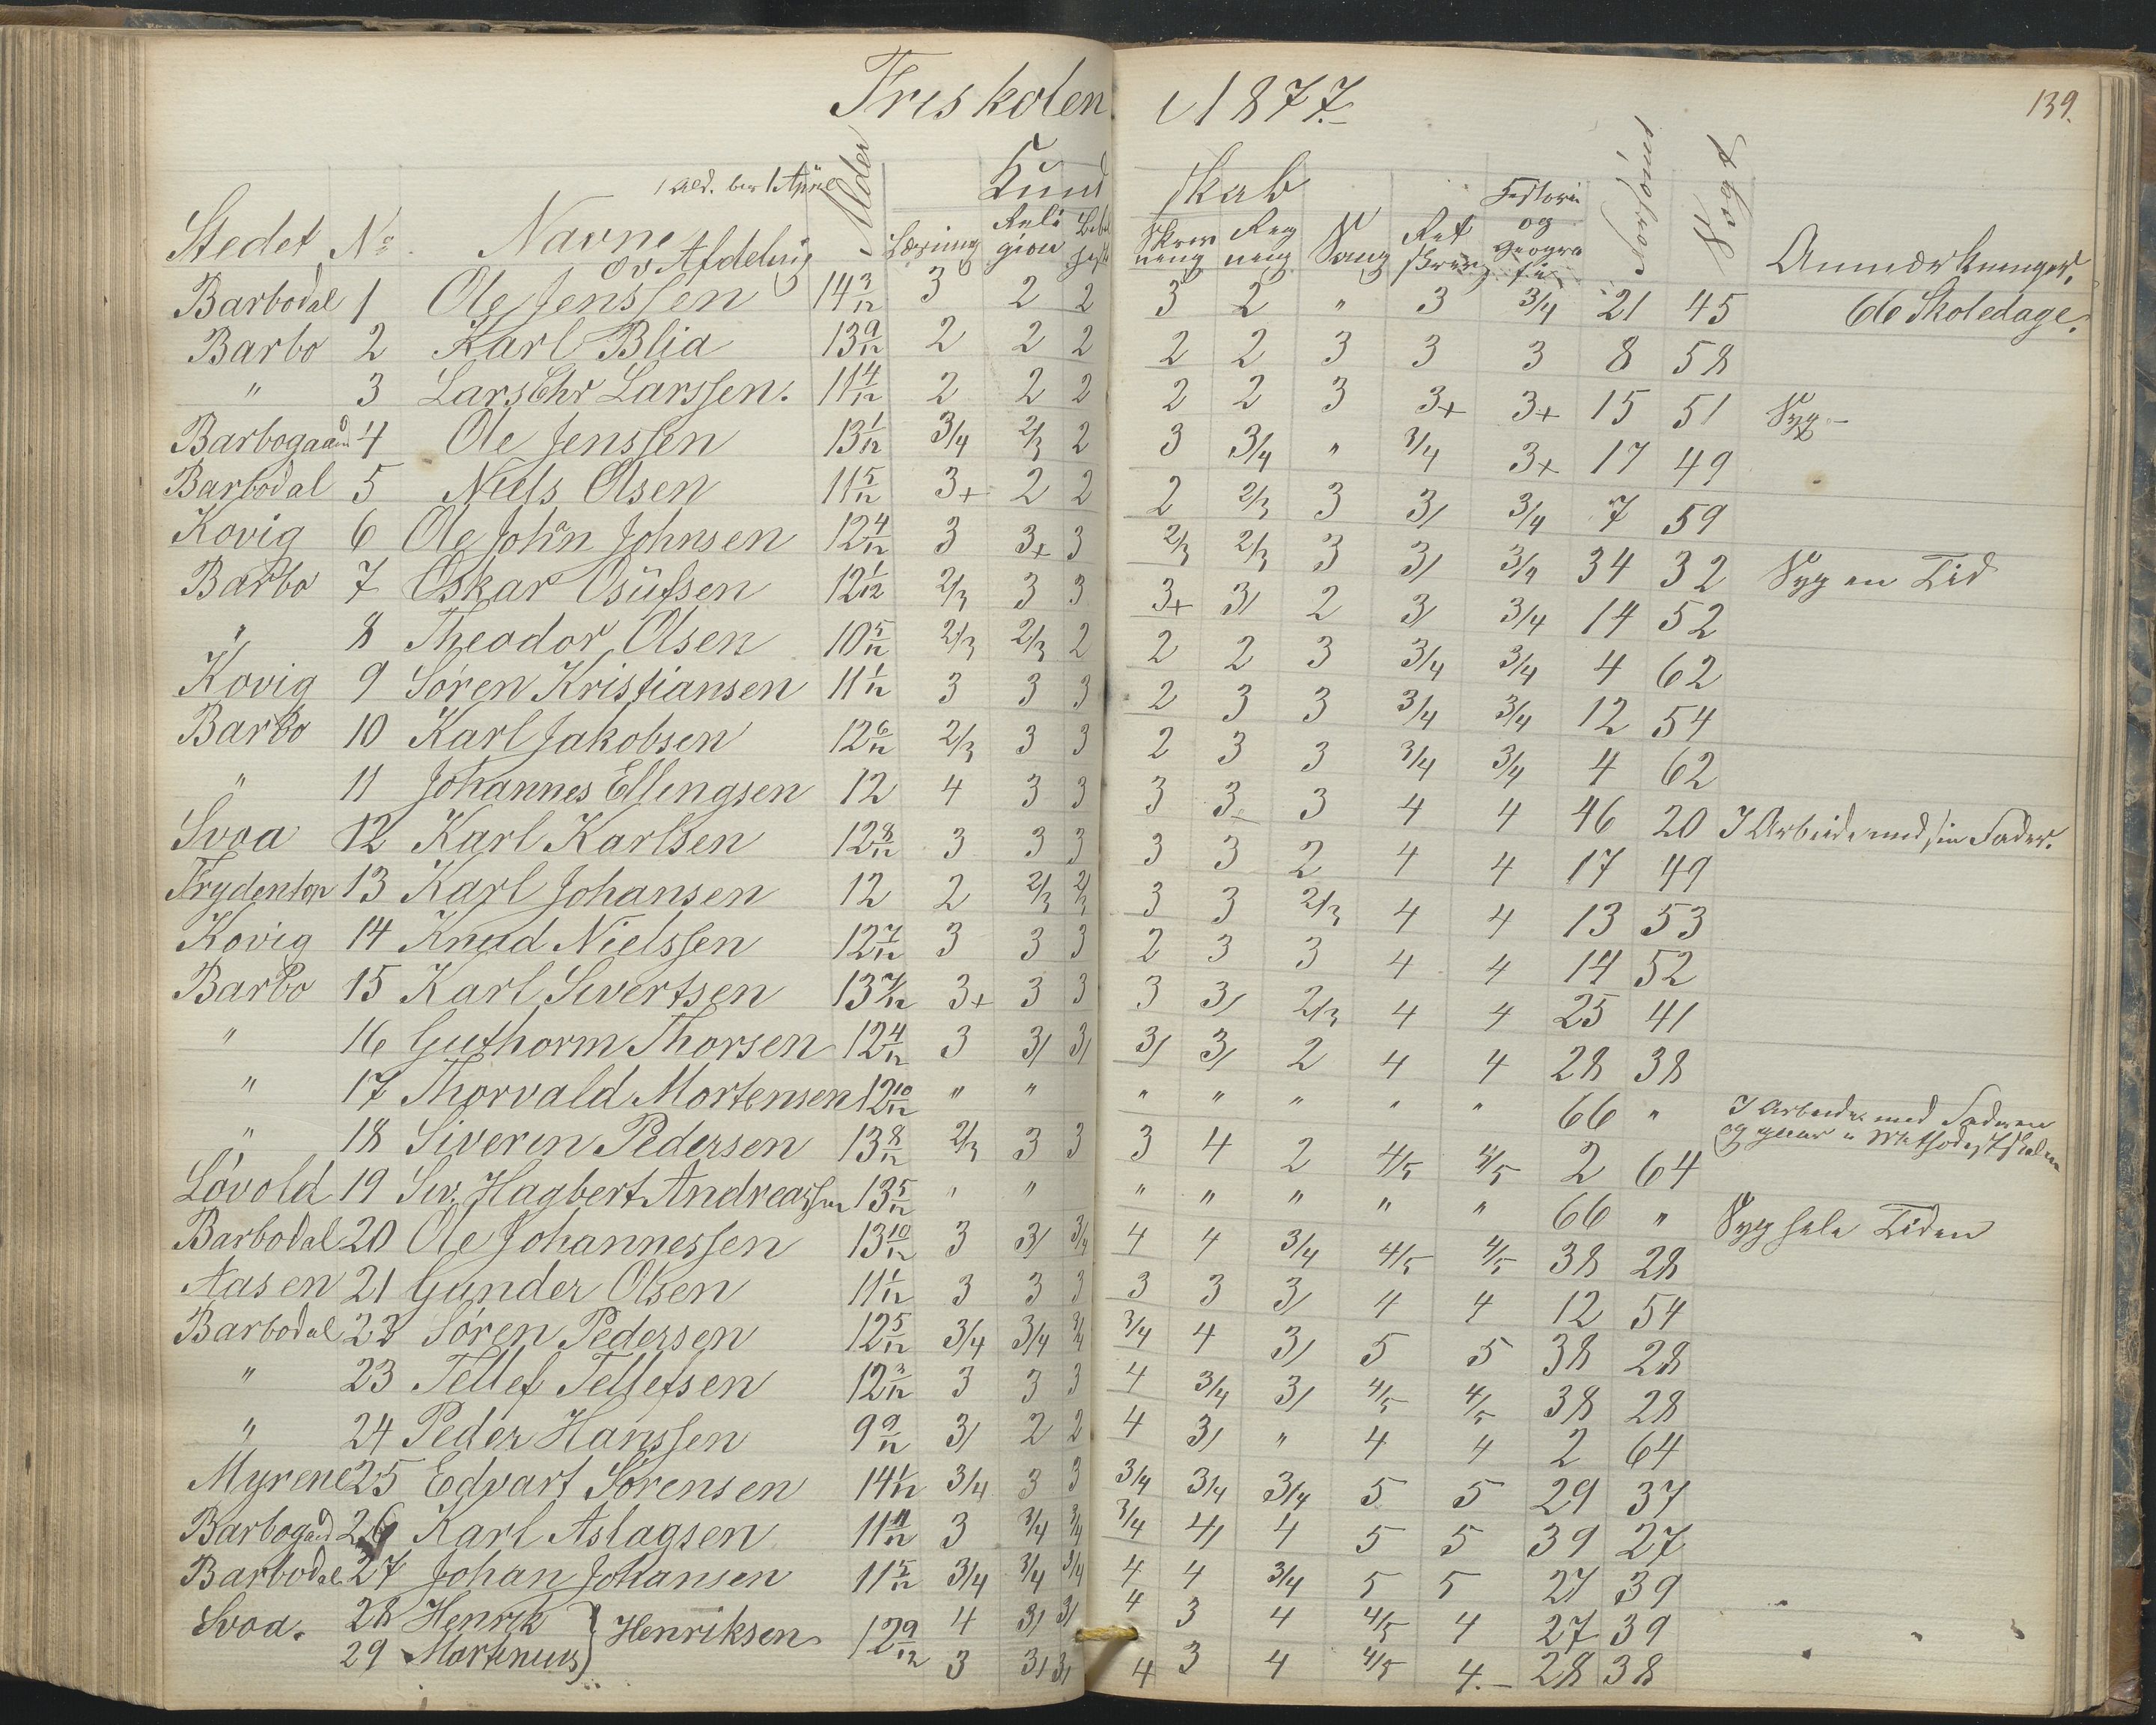 Friskolen i 1877.
139.
Kundskab
Stedet No. Navne Alder Læsning Religion Skrivning Regning Sang Retskrivn Historie og Geografi Forsømt Søgt Anmærkninger.
ov Afdeling
Barbodal 1 Ole Jenssen 14 3/12 3 2 2 3 2 " 3 3/4 21 45 66 Skoledage.
Barbo 2 Karl Blia 13 9/12 2 2 2 2 2 3 3 3 8 58
" 3 Lars Chr Larssen. 11 4/12 2 2 2 2 2 3 3+ 3+ 15 51 Syg -
Barbogaard 4 Ole Jenssen 13 1/12 3/4 2/3 2 3 3/4 " 3/4 3+ 17 49
Barbodal 5 Niels Olsen 11 5/12 3+ 2 2 2 2/3 3 3/ 3/4 7 59
Kovig 6 Ole John Johnsen 12 4/12 3 3+ 3 2/3 2/3 3 3/ 3/4 34 32 Syg en Tid
Barbo 7 Oskar Osüfsen 12 1/12 2/3 3 3 3+ 3/ 2 3/ 3/4 14 52
" 8 Theodor Olsen 10 5/12 2/3 2/3 2 2 2 3 3/4 3/4 4 62
Kovig 9 Sören Kristiansen 11 1/12 3 3 3 2 3 3 3/4 3/4 12 54
Barbo 10 Karl Jakobsen 12 6/12 2/3 3 3 2 3 3 3/4 3/4 4 62
" 11 Johannes Ellingsen 12 4 3 3 3 3- 3 4 4 46 20 I Arbeide med sin Fader.
Svoa 12 Karl Karlsen 12 8/12 3 3 3 3 3 2 4 4 17 49
Frydenlon 13 Karl Johansen 12 2 2/3 2/3 3 3 2/3 4 4 13 53
Kovig 14 Knud Nielssen 12 7/12 3 3 3 2 3 3 4 4 14 52
Barbo 15 Karl Sivertsen 13 7/12 3+ 3 3 3 3/ 2/3 4 4 25 41
" 16 Guthorm Thorsen 12 4/12 3 3/ 3/ 3/ 3/ 2 4 4 28 38
" 17 Thorvald Mortensen 12 10/12 " " " " " " " 66 " I Arbeide med Faderen
og gaar i Methodistskolen
" 18 Siverin Pedersen 13 8/12 2/3 3 3 3 4 2 4/5 4/5 2 64
Lövold 19 Siv. Hagbert Andreassen 13 5/12 " " " " " " " 66 " Syg hele Tiden
Barbodal 20 Ole Johannessen 13 10/12 3 3/ 3/4 4 4 3/4 4/5 4/5 38 28
Aasen 21 Gunder Olsen 11 1/12 3 3 3 3 3 3/ 4 4 12 54
Barbodal 22 Sören Pedersen 12 5/12 3/4 3/4 3/4 3/4 4 3/ 5 5 38 28
" 23 Tellef Tellefsen 12 3/12 3 3 3 4 3/4 3/ 4/5 4/5 38 28
" 24 Peder Hanssen 9 9/12 3/ 2 2 4 3/ " 4 4 2 64
Myrene 25 Edvart Sörensen 14 1/12 3/4 3 3 3/4 3/4 3/4 5 5 29 37
Barbogaad 26 Karl Aslagsen 11 11/12 3 3/4 3/4 3/4 4/ 4 5 5 39 27
Barbodal 27 Johan Johansen 11 5/12 3/4 3/4 3/4 4 4 3/4 5 5 27 39
Svoa. 28 Henrik } Henriksen 12 9/12 4 3/ 3/ 4 3 4 4/5 4 27 39
29 Martinius 3 3/ 3/ 4 3 4 4/5 4.- 28 38